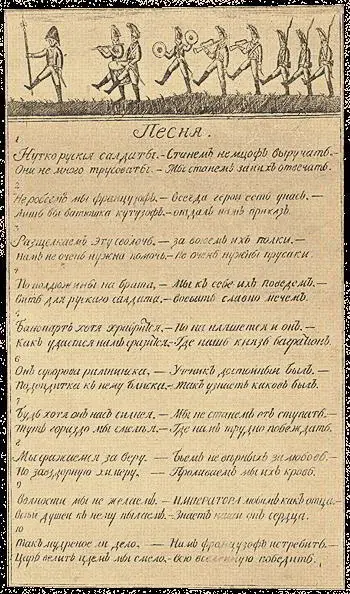 Песня.
1
Нутко руския салдаты. – Станемъ немцофъ выручать. –
Они не много трусоваты. – Мы станемъ за нихъ отвечать.
2
Не робеемъ мы французофъ. – всегда герои есть у насъ. –
Лишъ бы батюшка кутузофъ. – отдалъ намъ приказъ.
3
Разщелкаемъ эту сволочь. – за всеемъ ихъ полки. –
Намъ не очень нужна помочь. – Не очень нужны прусаки.
4
По полдюжины на брата, – Мы къ себе ихъ поведемъ. –
Бить для рускаго салдата. – воевать славно мечемъ.
5
Банопартъ хотя храбрится. – Но на пляшется и онъ. –
Какъ удастся намъ сразится. – Где нашъ князь багратионъ.
6
Онъ суворова римнинска, – Учникъ достойный былъ. –
Подойдитка къ нему блиска. – Такъ узнаеть каковъ былъ.
7
Будь хотя онъ насъ силнея. – Мы не станемъ отъ ступать. –
Тутъ гораздо мы смелея. – Где намъ трудно побеждать.
8
Мы сражаемся за веру. – Бьемъ не верныхъ за любовь.
Но за вздорную химеру. – Проливаемъ мы ихъ кровь.
9
Волности мы не желаемъ. – ИМПЕРАТОРА любимъ какъ отца.
Всей душей къ нему пылаемъ. – Знаетъ наши онъ сердца.
10
Такъ мудреное ли дело. – Намъ французофъ истребить. –
Царь велитъ идемъ мы смело. – Всю вселенную победить.